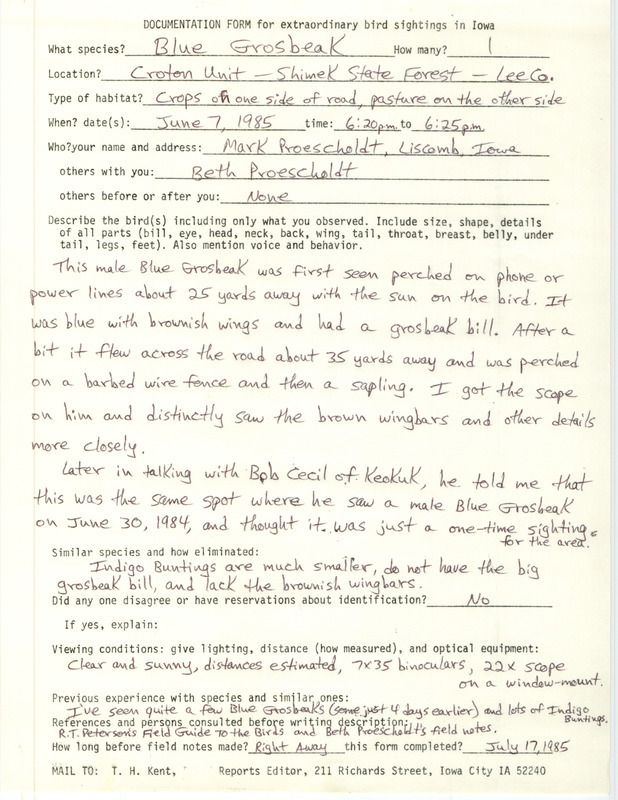 DOCUMENTATION FORM for extraordinary bird sightings in Iowa
What species? Blue Grosbeak How many? 1
Location? Croton Unit - Shimek State Forest - Lee Co.
Type of habitat? Crops on one side of road, pasture on the other side
When? date(s): June 7, 1985 time: 6:20 p.m. to 6:25 p.m.
Who? your name and address: Mark Proescholdt, Liscomb, Iowa
others with you: Beth Proescholdt
others before or after you: None
Describe the bird(s) including only what you observed. Include size, shape, details
of all parts (bill, eye, head, neck, back, wing, tail, throat, breast, belly, under
tail, legs, feet). Also mention voice and behavior.
This male Blue Grosbeak was first seen perched on phone or
power lines about 25 yards away with the sun on the bird. It
was blue with brownish wings and had a grosbeak bill. After a
bit it flew across the road about 35 yards away and was perched
on a barbed wire fence and then a sapling. I got the scope
on him and distinctly saw the brown wingbars and other details
more closely.
Later in talking with Bob Cecil of Keokuk, he told me that
this was the same spot where he saw a male Blue Grosbeak
on June 30, 1984, and thought it was just a one-time sighting
for the area.
Similar species and how eliminated:
Indigo Buntings are much smaller, do not have the big
grosbeak bill, and lack the brownish wingbars.
Did any one disagree or have reservations about identification? No
If yes, explain:
Viewing conditions: give lighting, distance (how measured), and optical equipment:
Clear and sunny, distances estimated, 7x35 binoculars, 22x scope
on a window-mount.
Previous experience with species and similar ones:
I've seen quite a few Blue Grosbeaks (some just 4 days earlier) and lots of Indigo
Buntings.
References and persons consulted before writing description:
R.T. Peterson's Field Guide To the Birds and Beth Proescholdt's field notes.
How long before field notes made? Right Away this form completed? July 17, 1985
MAIL TO: T. H. Kent, Reports Editor, 211 Richards Street, Iowa City IA 52240